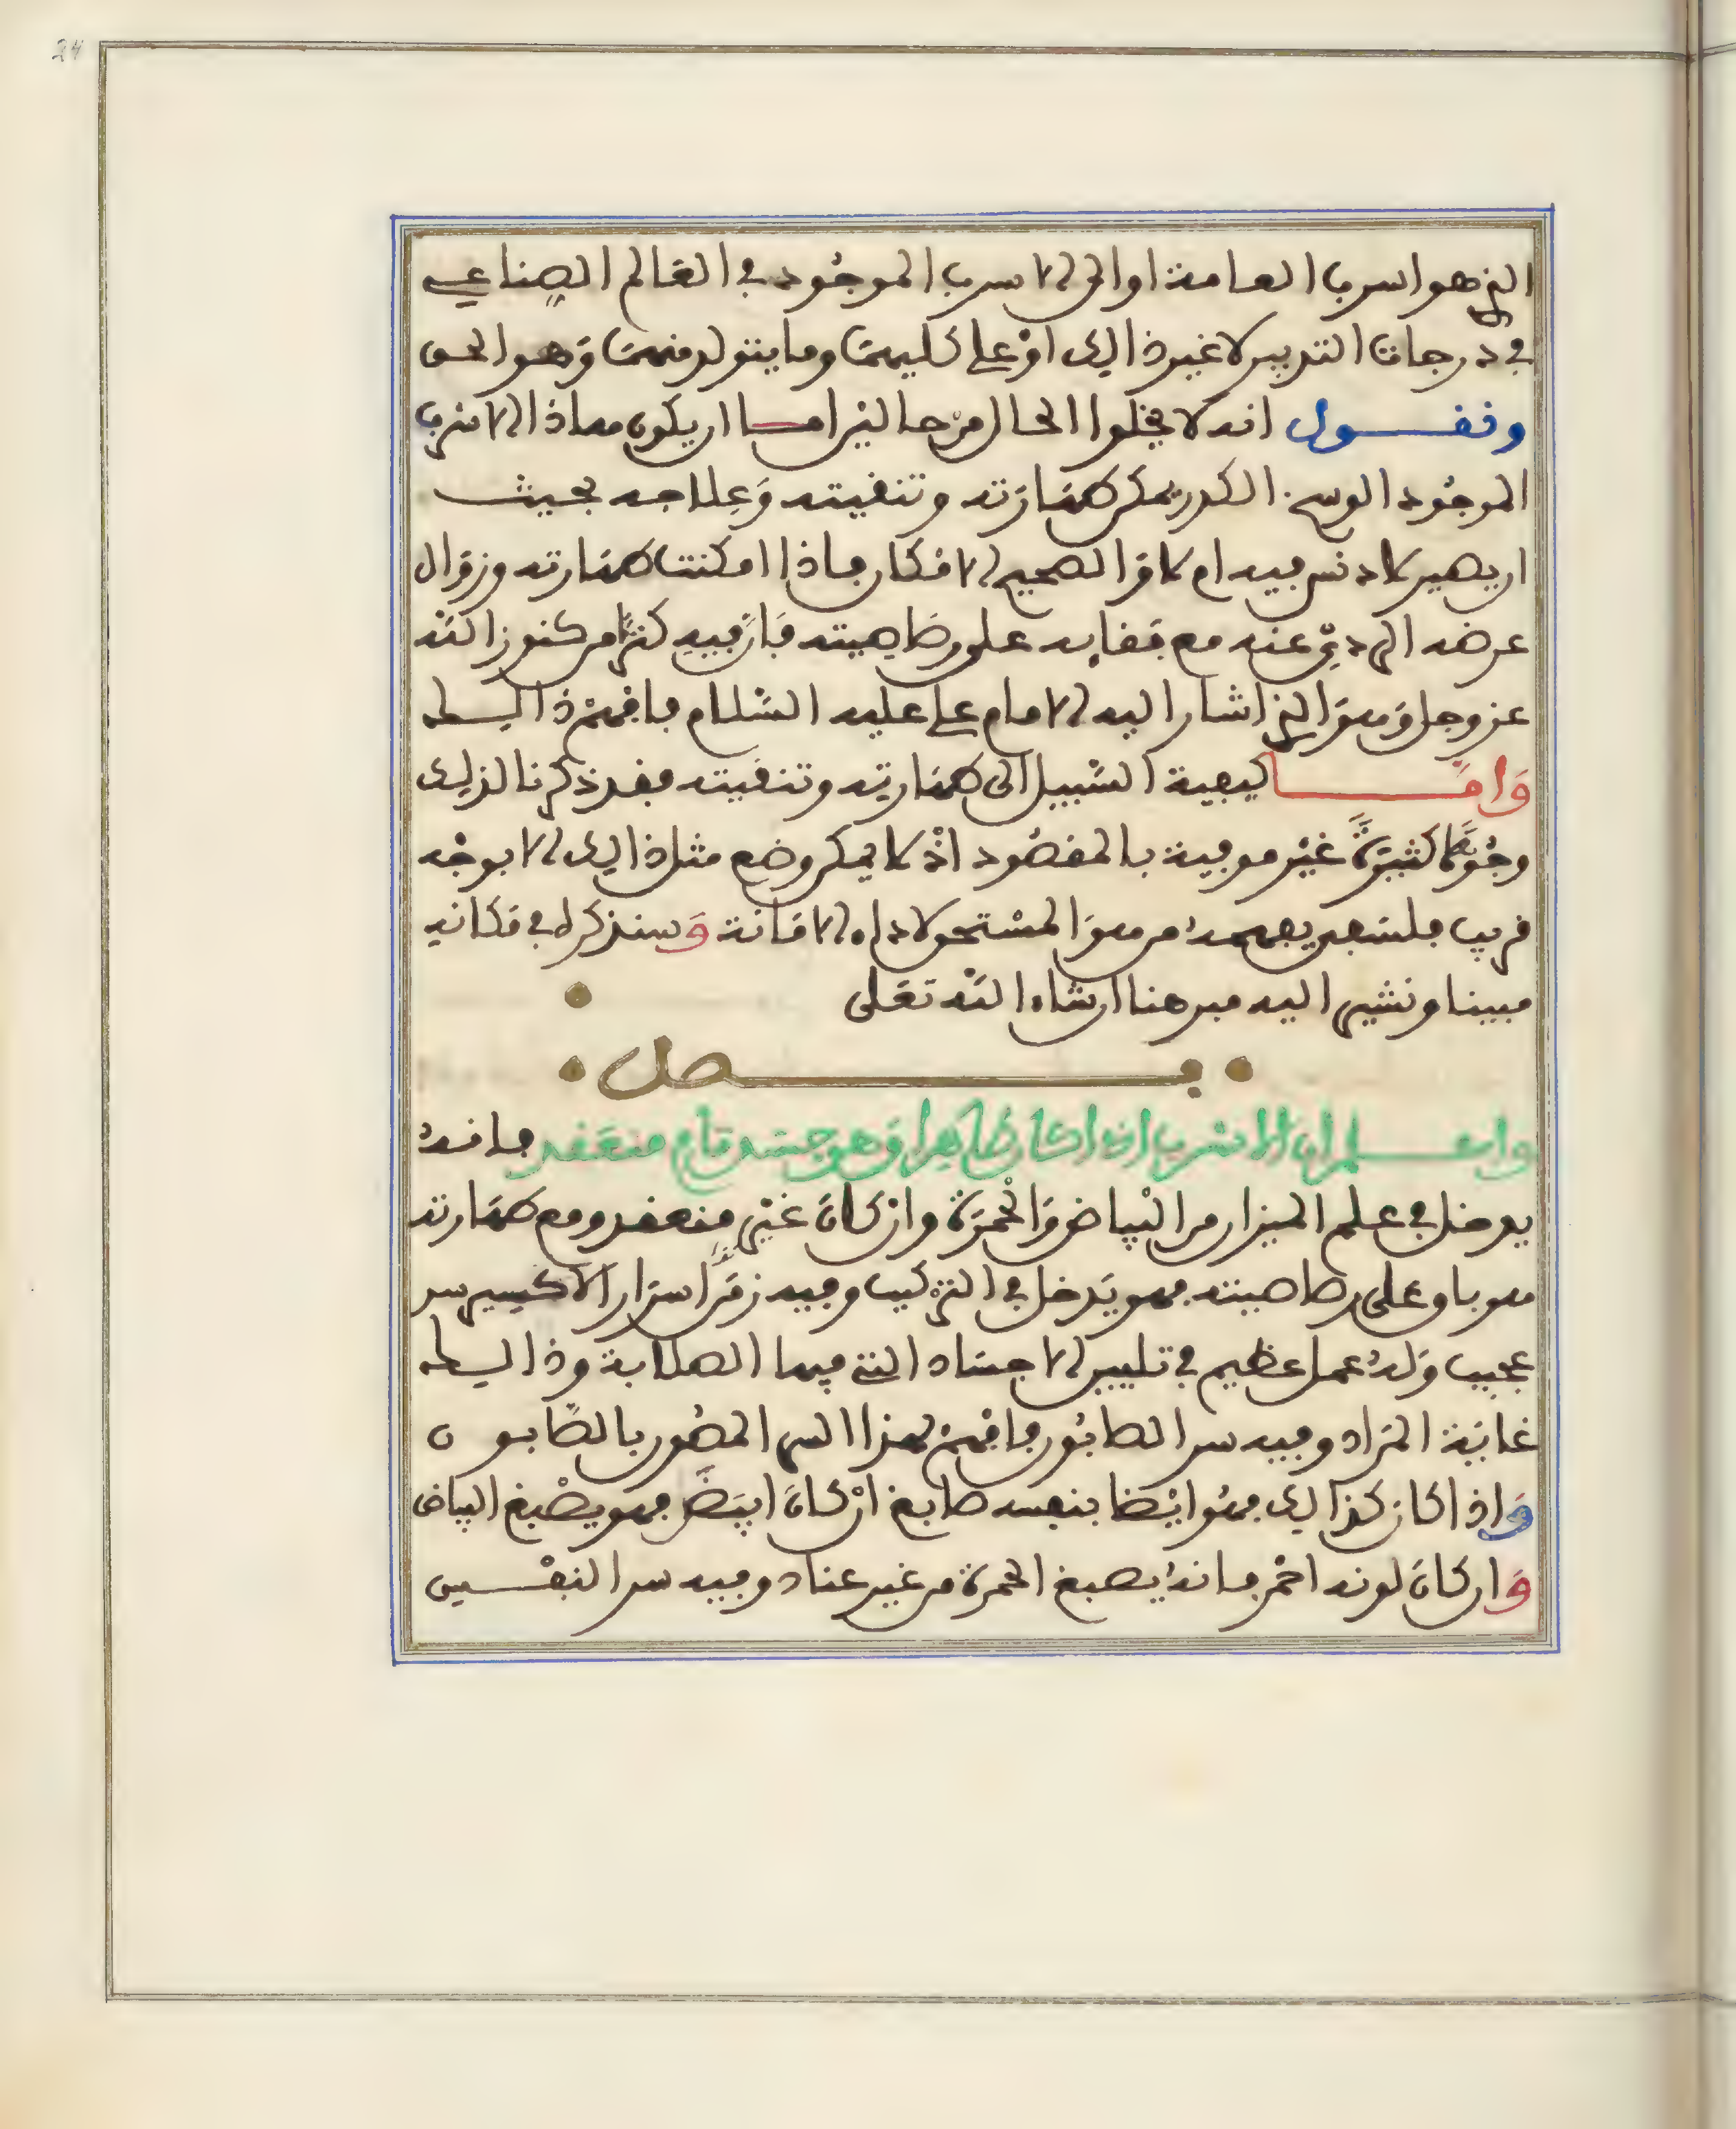 24
الذي هو اسرب العامة او الى الاسرب الموجُود في العَالم الصِناعي
في درجات التدبير لا غير ذالك اوْ على كليهمَا وما يتولد منهمَا وَهو الحق
ونقول انه لا يخلوا الحال منْ حالين امـا ان يكون هاذا الاسرب
الموجُود الوسخ الكدر يمكن طهَارَته وتنقيته وَعِلاجه بحيث
ان يصير لا دنس فيه ام لا وَالصحيح الامْكان فاذا امكنت طهَارته وزوَال
عرضه الردِيّ عنه مع بَقايه على رصَاصيته فَانّ فيه كنزًا من كنوز الله
عز وجل وَهوَ الذي اشار اليه الامام علي عليه السَّلام فافهمْ ذالـك
وَامَّـا كيفية السَّبيل الى طهَارته وتنقيته فقد ذكرنا لذلك
وجُوهًا كثيرَةً غيْر موفية بالمقصُود اذْ لا يمكن وضع مثل ذالك الا بوجْه
قريب فلتَجرِ بفهمهُ من هوَ المستحق لاداء الامَانة وَسنذكره في مَكانه
مبينا ونشير اليه مبرهنا ان شاء الله تعَلى
فـصل
واعـلم ان الاسْرب اذا كان ظاهِرا وَهو جسَد قايم منعَقد فانهُ
يدخل في علم الميزان من البْيَاض وَالْحُمرَة وانْ كانَ غيْر منعقد ومع طهَارته
هو باق على رصاصيته فهو يَدخل في الترْكيب وفيه رَمزٌ من اسرَار الاكسير سر
عجيب وَلهُ عمل عظيم في تليين الاجسَاد التي فيها الصلابة وذالـك
غايَة المرَاد وفيه سر الصابُون فافهمْ لهذا السر المصُون بالصَّابون
وَاذا كان كذالك فهُو ايْضا بنفسه صابغ انْ كانَ ابيَضَ فهو يصْبغ البياض
وَان كانَ لونه احْمر فانهُ يصبغ الحمرة من غير عناد وفيه سر النفْـس